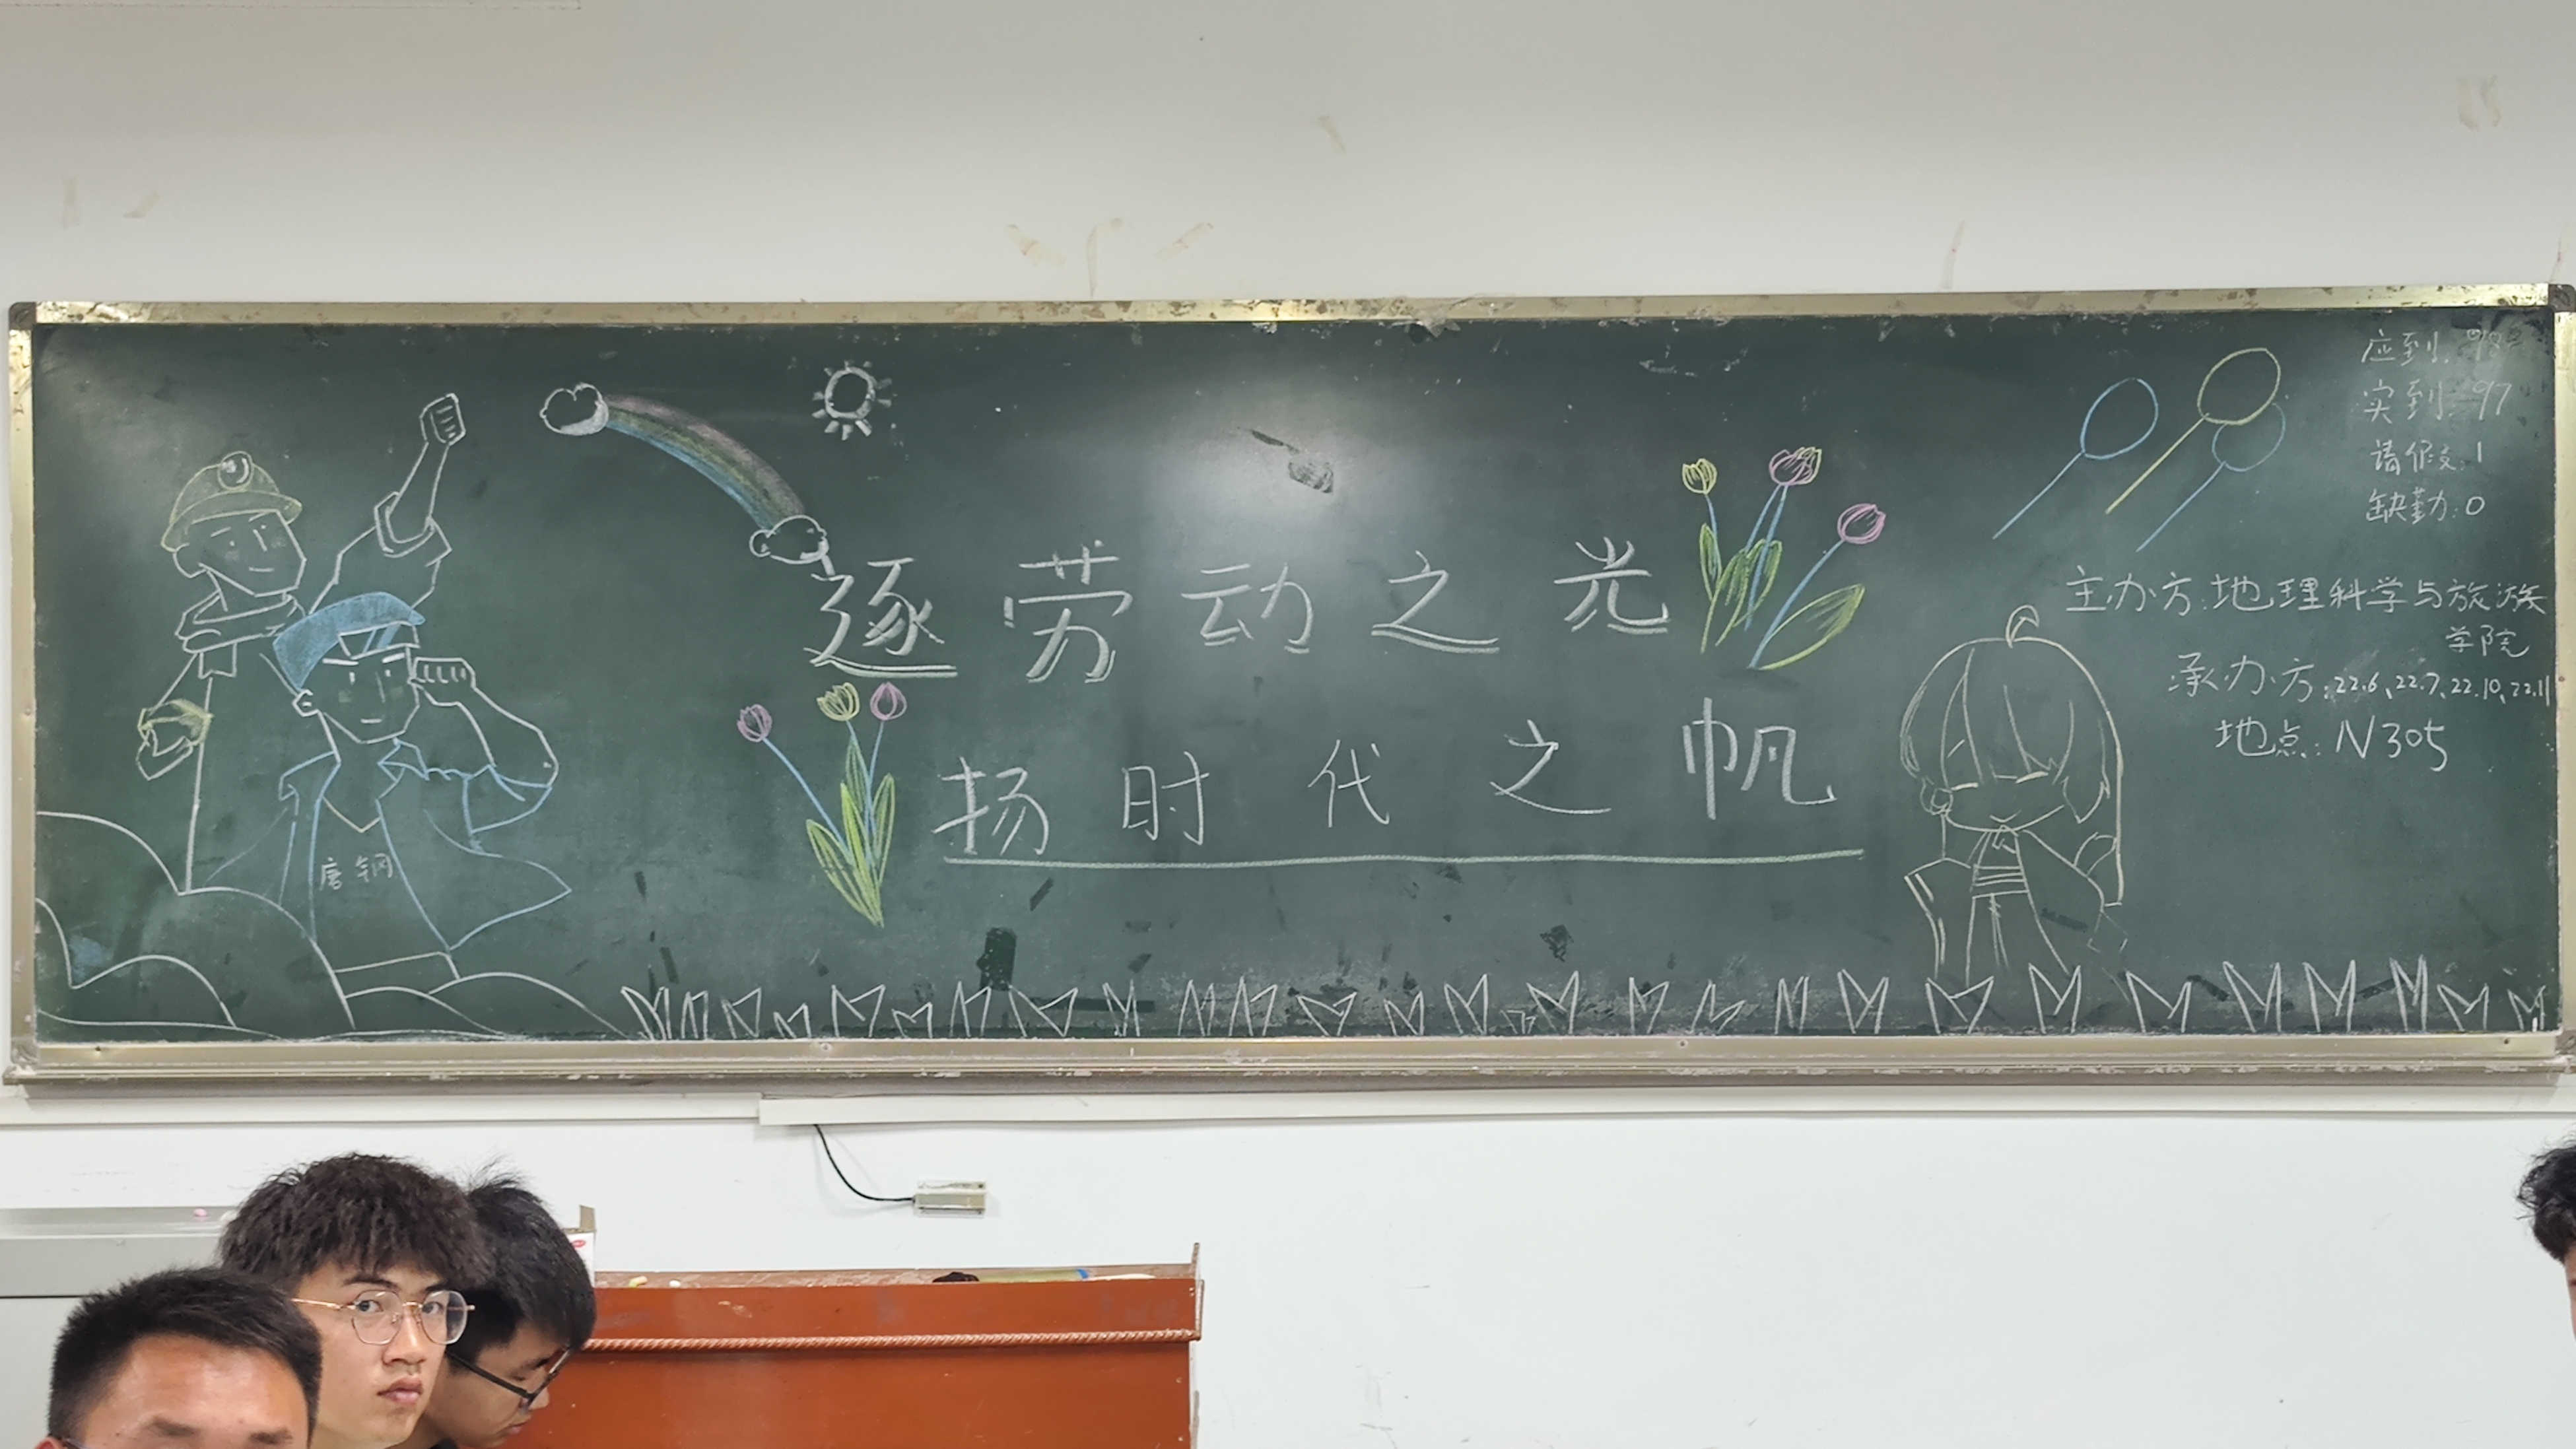 应到: 98
实到: 97
请假: 1
缺勤: 0
逐劳动之光
扬时代之帆
主办方: 地理科学与旅游
学院
承办方: 22.6、22.7、22.10、22.11
地点: N305
唐钢